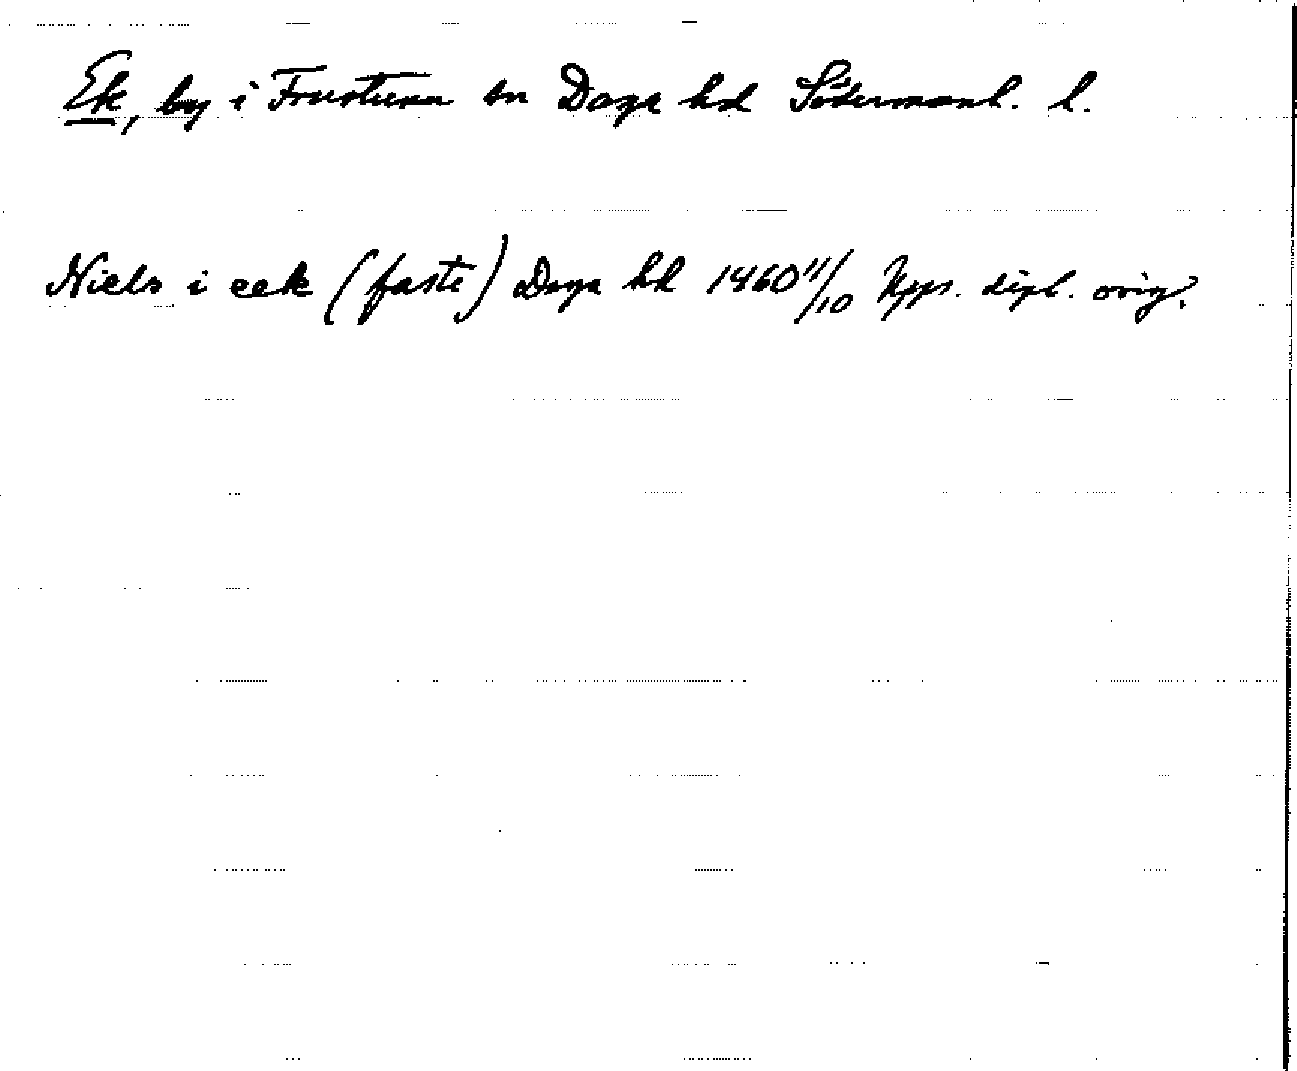 Ek, by i Frustuna sn Daga hd Södermanl. l.
Niels i eek (faste) Daga hd 1460 11/10 Upps. dipl. orig.